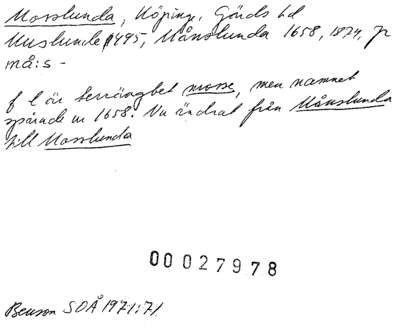 Mosslunda, Köpinge, Gärds hd
Muslunde 1495, Månslunda 1658, 1874, jr
må:s -
f l är terrängbet mosse, men namnet
spårade ur 1658. Nu ändrat från Månslunda
till Mosslunda
00027978
Benson SOÅ 1971:71